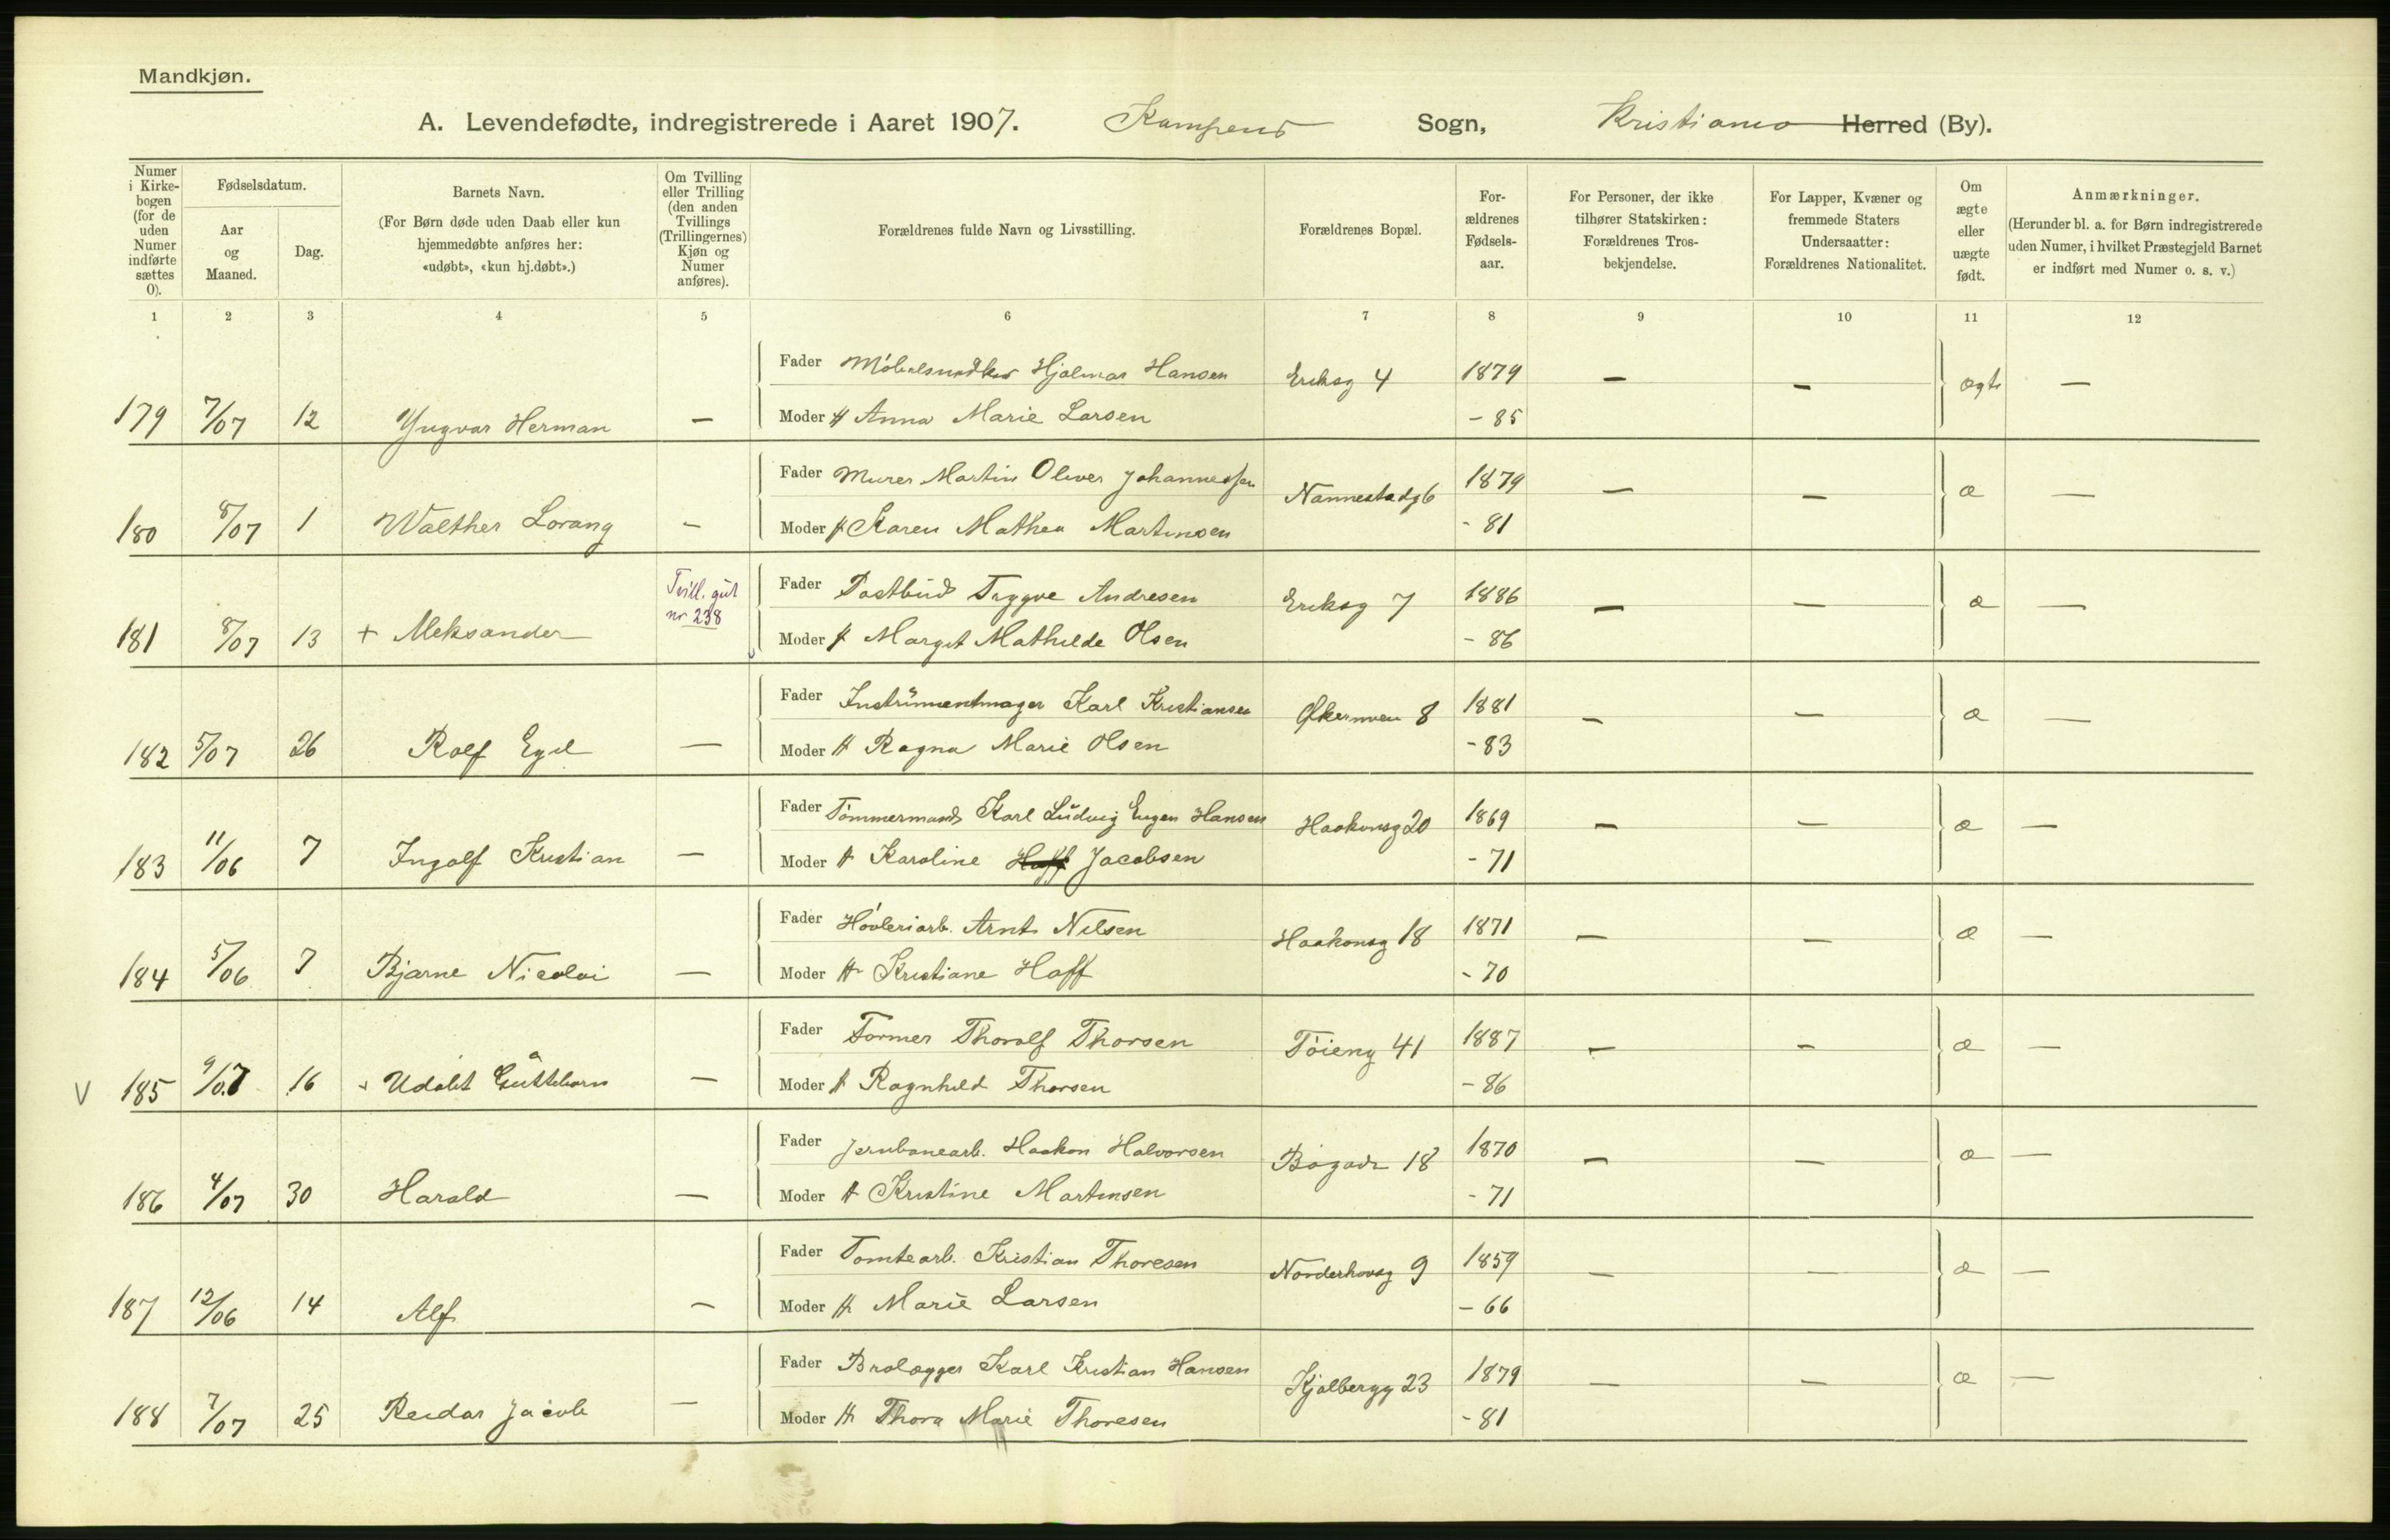 Mandkjøn.
A. Levendefødte, indregistrerede i Aaret 1907. Kampens Sogn, Kristiania Herred (By).
Numer i Kirke-bogen (for de uden Numer indførte sættes 0).
Fødselsdatum.
Aar og Maaned.
Dag.
Barnets Navn.
(For Børn døde uden Daab eller kun hjemmedøbte anføres her: «udøbt», «kun hj.døbt».)
Om Tvilling eller Trilling (den anden Tvillings (Trillingernes) Kjøn og Numer anføres).
Forældrenes fulde Navn og Livsstilling.
Forældrenes Bopæl.
For-ældrenes Fødsels-aar.
For Personer, der ikke tilhører Statskirken: Forældrenes Tros-bekjendelse.
For Lapper, Kvæner og fremmede Staters Undersaatter: Forældrenes Nationalitet.
Om ægte eller uægte født.
Anmærkninger.
(Herunder bl. a. for Børn indregistrerede uden Numer, i hvilket Præstegjeld Barnet er indført med Numer o. s. v.)
1 2 3 4 5 6 7 8 9 10 11 12
Fader Möbelsnedker Hjalmar Hansen Eriksg 4 1879 — — ægte —
179 7/07 12 Yngvar Herman — Moder H Anna Marie Larsen - 85
Fader Murer Martin Oliver Johannessen Nannestadg 6 1879 — — æ —
180 8/07 1 Walther Lorang — Moder H Karen Mathea Martinsen - 81
Tvill. gut nr 238
Fader Postbud Trygve Andresen Eriksg 7 1886 — — æ —
181 8/07 13 + Aleksander Moder H Margit Mathilde Olsen - 86
Fader Instrumentmager Karl Kristiansen Økernveien 8 1881 — — æ —
182 5/07 26 Rolf Egil — Moder H Ragna Marie Olsen - 83
Fader Tömmermand Karl Ludvig Eugen Hansen Haakonsg 20 1869 — — æ —
183 11/06 7 Ingolf Kristian — Moder H Karoline Hoff Jacobsen - 71
Fader Hövleriarb. Arnt Nilsen Haakonsg 18 1871 — — æ —
184 5/06 7 Bjarne Nicolai — Moder H Kristiane Hoff - 70
Fader Former Thoralf Thorsen Töieng 41 1887 — — æ —
V 185 9/07 16 + Udöbt Guttebarn — Moder H Ragnhild Thorsen - 86
Fader Jernbanearb. Haakon Halvorsen Bögade 18 1870 — — æ —
186 4/07 30 Harald — Moder H Kristine Martinsen - 71
Fader Tomtearb. Kristian Thoresen Norderhovsg 9 1859 — — æ —
187 12/06 14 Alf — Moder H Marie Larsen - 66
Fader Brolægger Karl Kristian Hansen Kjølbergg 23 1879 — — æ —
188 7/07 25 Reidar Jacob — Moder H Thora Marie Thoresen - 81